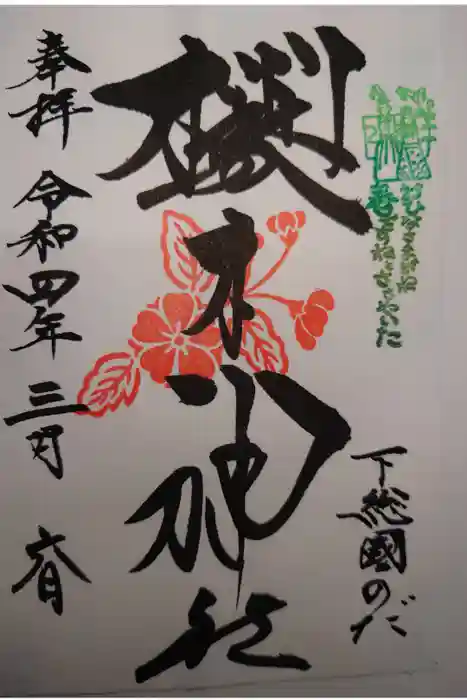 下総國のだ
櫻木神社
奉拝 令和四年 三月 六日